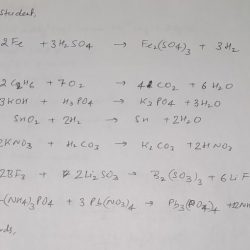 Student,
2Fe + 3H₂SO₄ → Fe₂(SO₄)₃ + 3H₂
2C₂H₆ + 7O₂ → 4CO₂ + 6H₂O
3KOH + H₃PO₄ → K₃PO₄ + 3H₂O
SnO₂ + 2H₂ → Sn + 2H₂O
2KNO₃ + H₂CO₃ → K₂CO₃ + 2HNO₃
2BF₃ + 3Li₂SO₃ → B₂(SO₃)₃ + 6LiF
(NH₄)₃PO₄ + 3Pb(NO₃)₄ → Pb₃(PO₄)₄ +